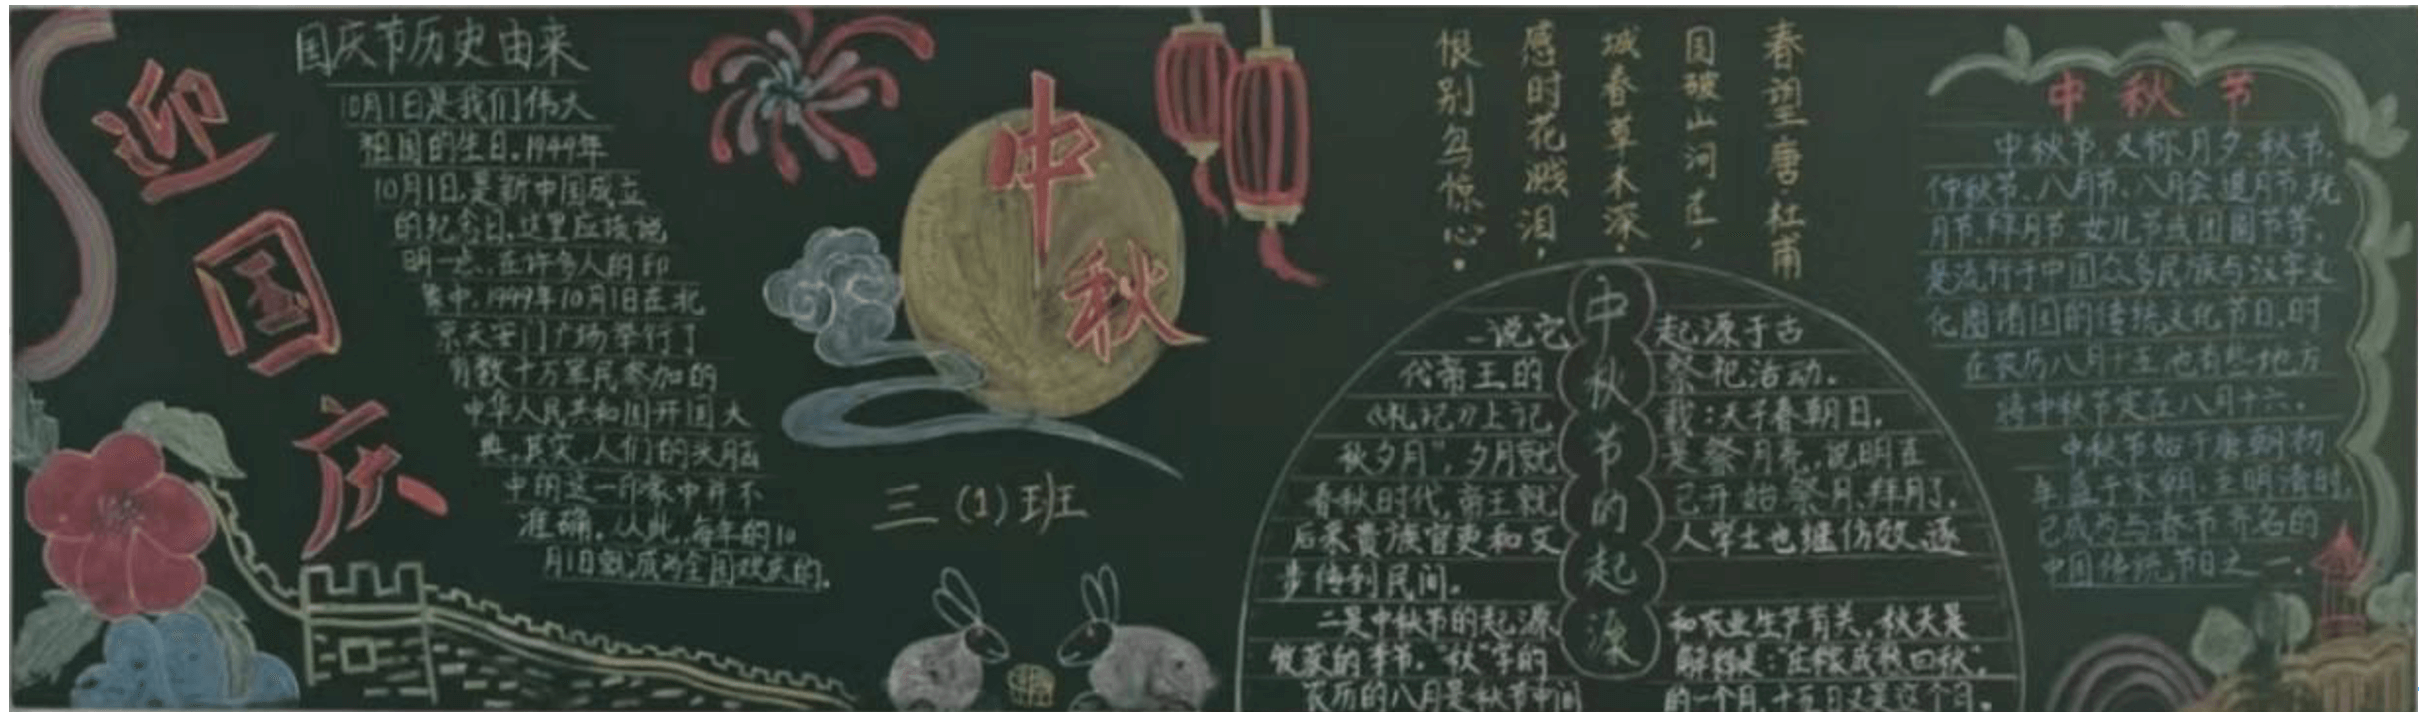 迎
国
庆
国庆节历史由来
10月1日是我们伟大
祖国的生日。1949年
10月1日,是新中国成立
的纪念日,这里应该说
明一点,在许多人的印
象中,1949年10月1日在北
京天安门广场举行了
有数十万军民参加的
中华人民共和国开国大
典,其实,人们的头脑
中的这一印象中并不
准确。从此,每年的10
月1日就成为全国欢庆的。
中
秋
三(1)班
春望 唐·杜甫
国破山河在,
城春草木深。
感时花溅泪,
恨别鸟惊心。
中秋节的起源
一说它起源于古
代帝王的祭祀活动。
《礼记》上记载:天子春朝日,
秋夕月",夕月就是祭月亮,说明在
春秋时代,帝王就已开始祭月、拜月了。
后来贵族官吏和文人学士也继仿效,逐
步传到民间。
二是中秋节的起源和农业生产有关,秋天是
收家的季节。"秋"字的解释是:"庄稼成熟曰秋"。
农历的八月是秋节中间的一个月,十五日又是这个月。
中秋节
中秋节,又称月夕、秋节、
仲秋节、八月节、八月会、追月节、玩
月节、拜月节、女儿节或团圆节等,
是流行于中国众多民族与汉字文
化圈诸国的传统文化节日,时
在农历八月十五,也有些地方
将中秋节定在八月十六。
中秋节始于唐朝初
年,盛于宋朝,至明清时,
已成为与春节齐名的
中国传统节日之一。